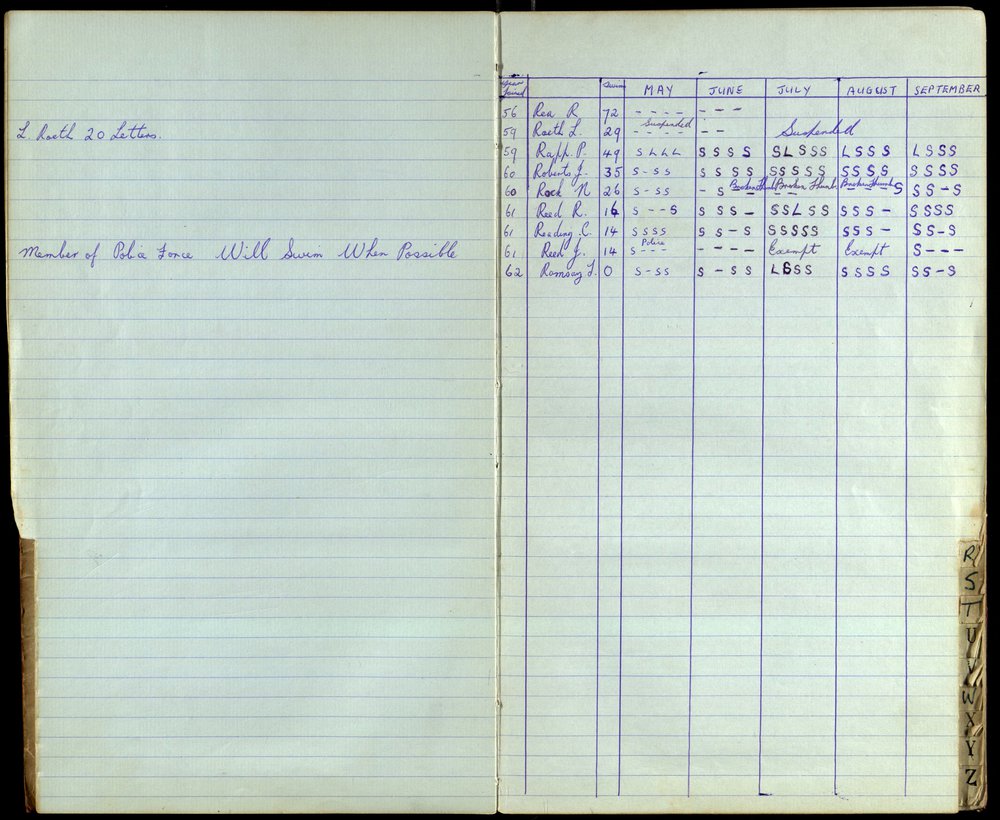 L. Roeth 20 Letters.
Member of Police Force Will Swim When Possible
Year Joined Swims MAY JUNE JULY AUGUST SEPTEMBER
56 Rea R. 72 - - - - - - -
59 Roeth L. 29 Suspended - - - - - - Suspended
59 Rapp. P. 49 S L L L S S S S S L S S S L S S S L S S S
60 Roberts J. 35 S - S S S S S S S S S S S S S S S S S S S
60 Rock N 26 S - S S - S Broken Thumb - Broken Thumb - - Broken Thumb S S S - S
61 Reed R. 16 S - - S S S S - S S L S S S S S - S S S S
61 Reading C. 14 S S S S S S - S S S S S S S S S - S S - S
61 Reed J. 14 Police S - - - - - - - Exempt Exempt S - - -
62 Ramsay J. 0 S - S S S - S S L S S S S S S S S S - S
R
S
T
U
V
W
X
Y
Z